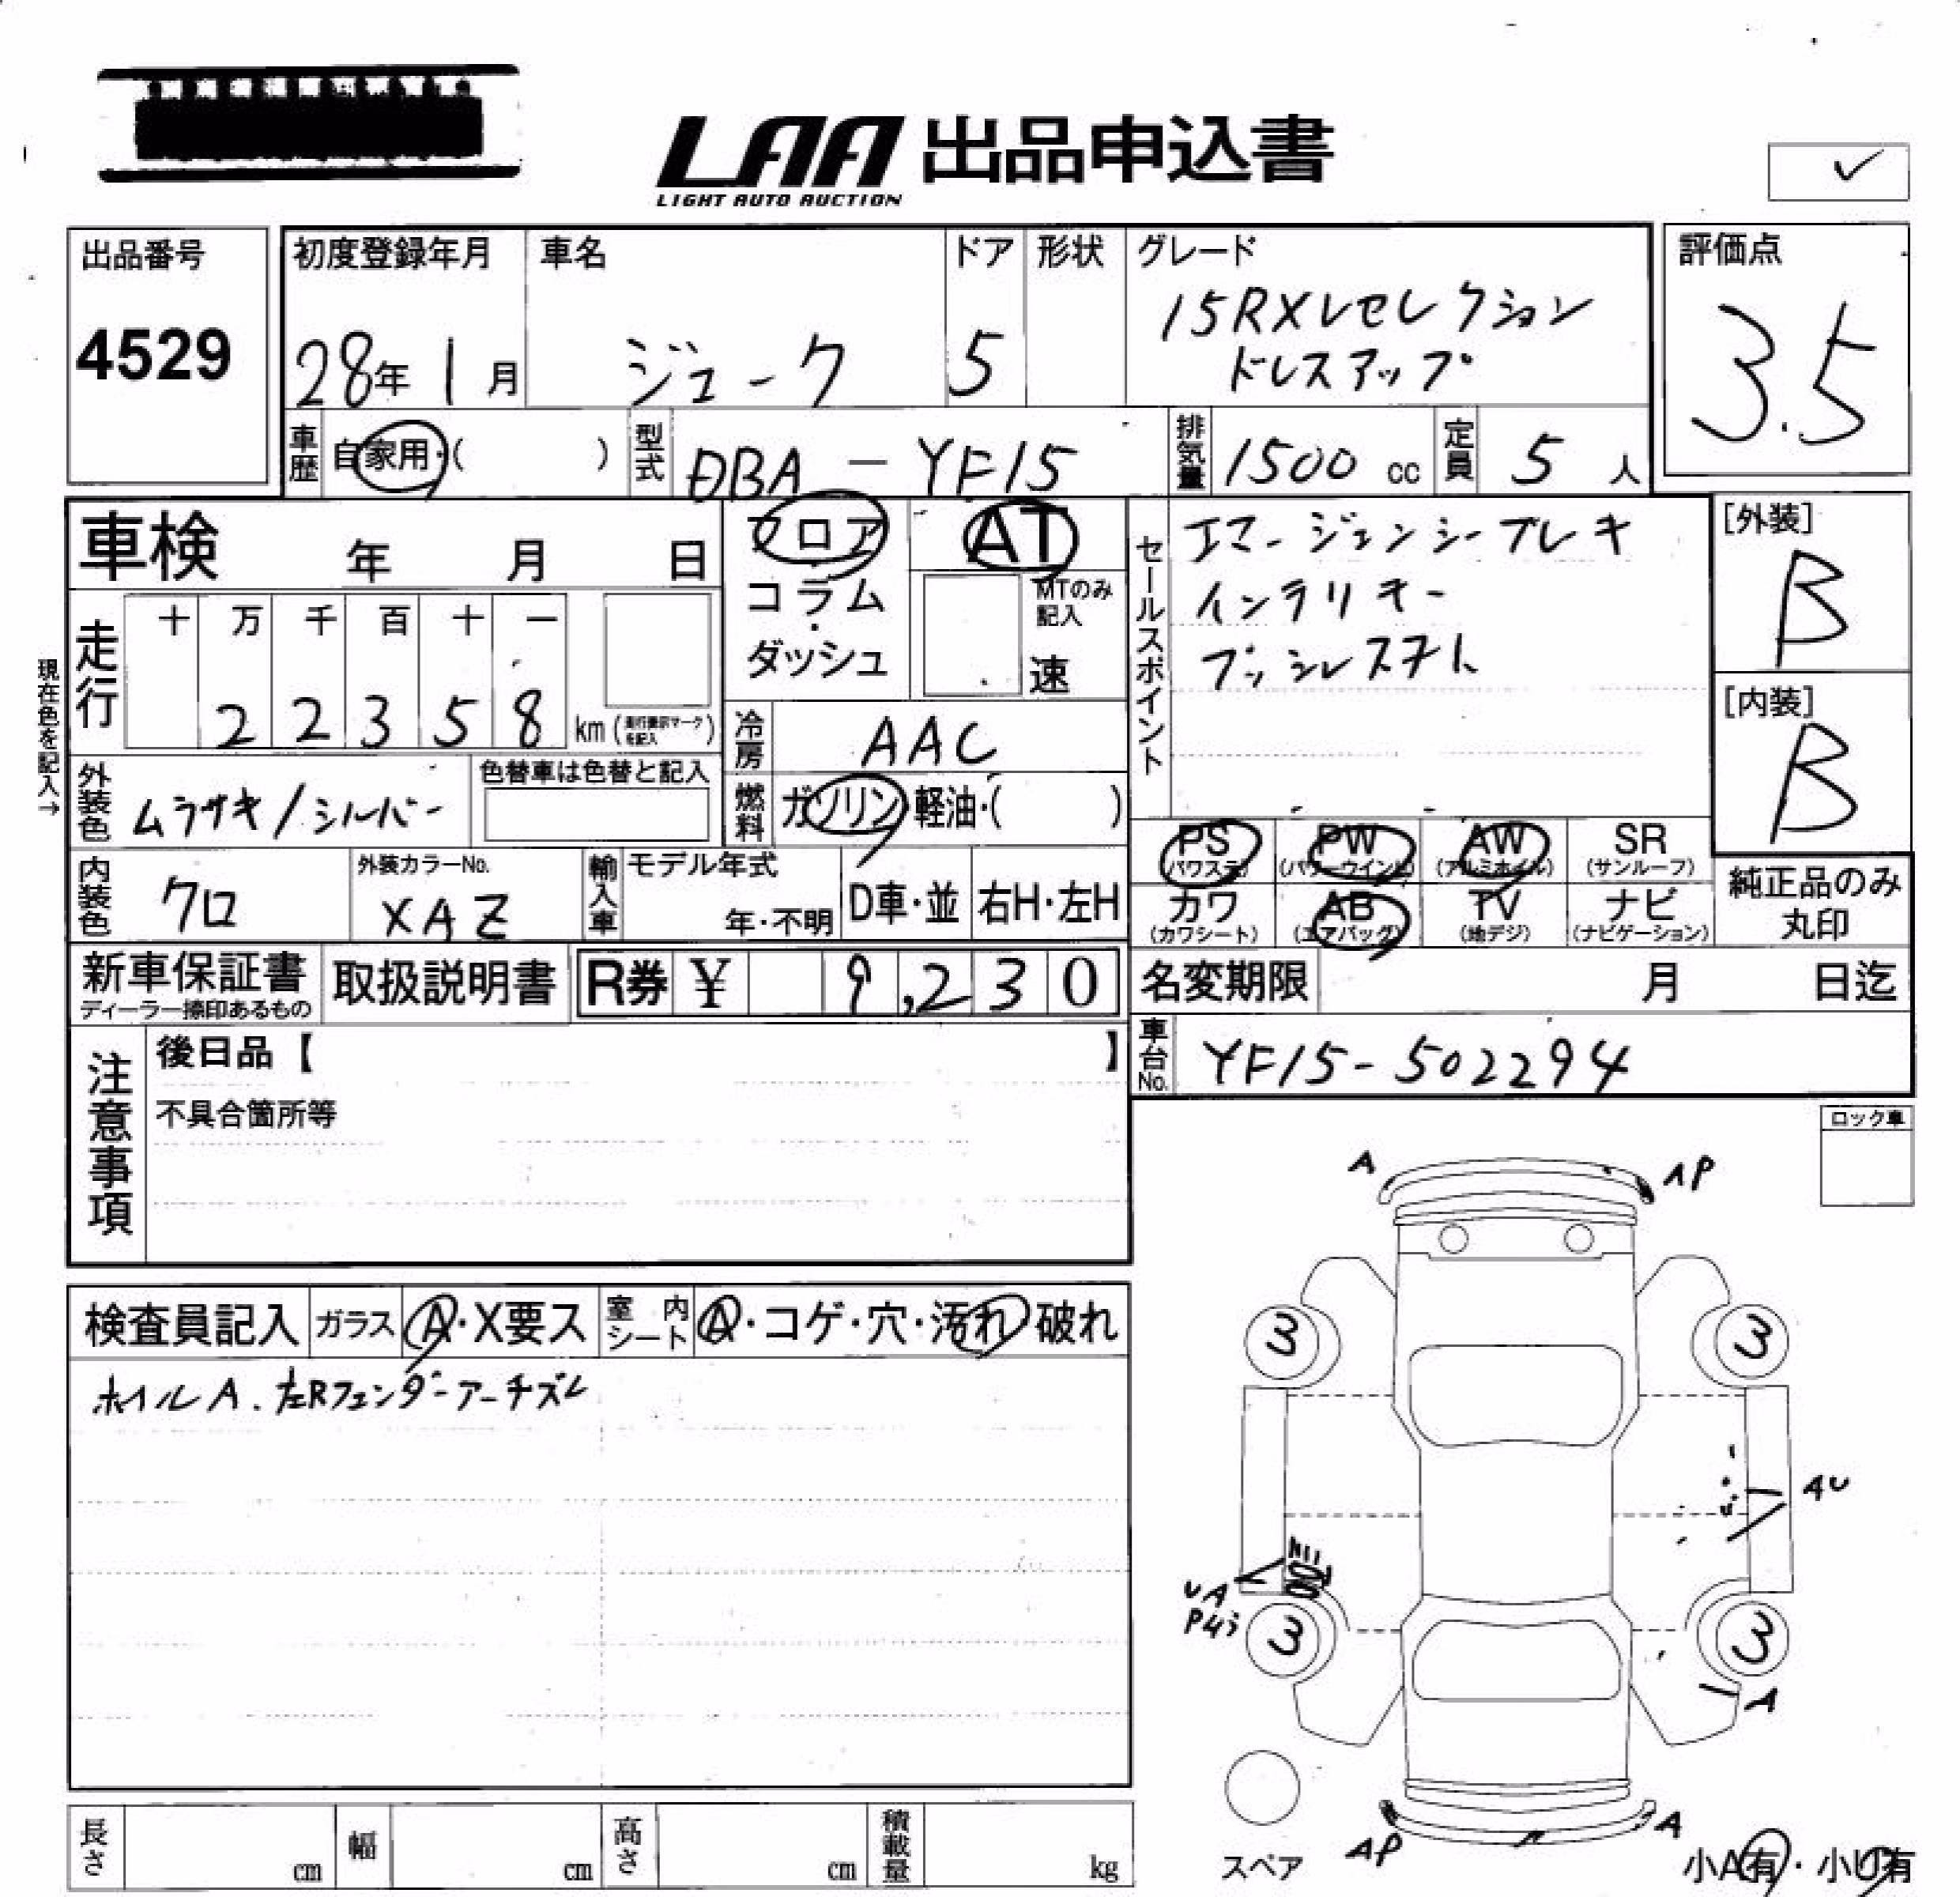 LAA 出品申込書
LIGHT AUTO AUCTION
✓
出品番号
4529
初度登録年月
28年 1月
車名
ジューク
ドア
5
形状
グレード
15RXVセレクション
ドレスアップ
評価点
3.5
車歴
自家用・( )
型式
DBA - YF15
排気量
1500 cc
定員
5 人
車検 年 月 日
フロア
コラム
・
ダッシュ
AT
MTのみ
記入
速
セールスポイント
エマージェンシーブレーキ
インテリキー
プッシュスタート
[外装]
B
[内装]
B
現在色を記入→
走行
十 万 千 百 十 一
2 2 3 5 8 km (走行表示マークを記入)
冷房
AAC
外装色
ムラサキ/シルバー
色替車は色替と記入
燃料
ガソリン・軽油・( )
PS
(パワステ)
PW
(パワーウインド)
AW
(アルミホイル)
SR
(サンルーフ)
カワ
(カワシート)
AB
(エアバッグ)
TV
(地デジ)
ナビ
(ナビゲーション)
純正品のみ
丸印
内装色
クロ
外装カラーNo.
XAZ
輸入車
モデル年式
年・不明
D車・並
右H・左H
新車保証書
ディーラー捺印あるもの
取扱説明書
R券 ¥ 9,230
名変期限 月 日迄
車台No.
YF15-502294
注意事項
後日品【 】
不具合箇所等
ロック車
A
AP
3
3
AU
UA
3
3
A
AP
A
スペア
小A有・小U有
検査員記入
ガラス
A・X要ス
室内シート
A・コゲ・穴・汚れ・破れ
ホイルA. 左Rフェンダーアーチズレ
長さ cm
幅 cm
高さ cm
積載量 kg